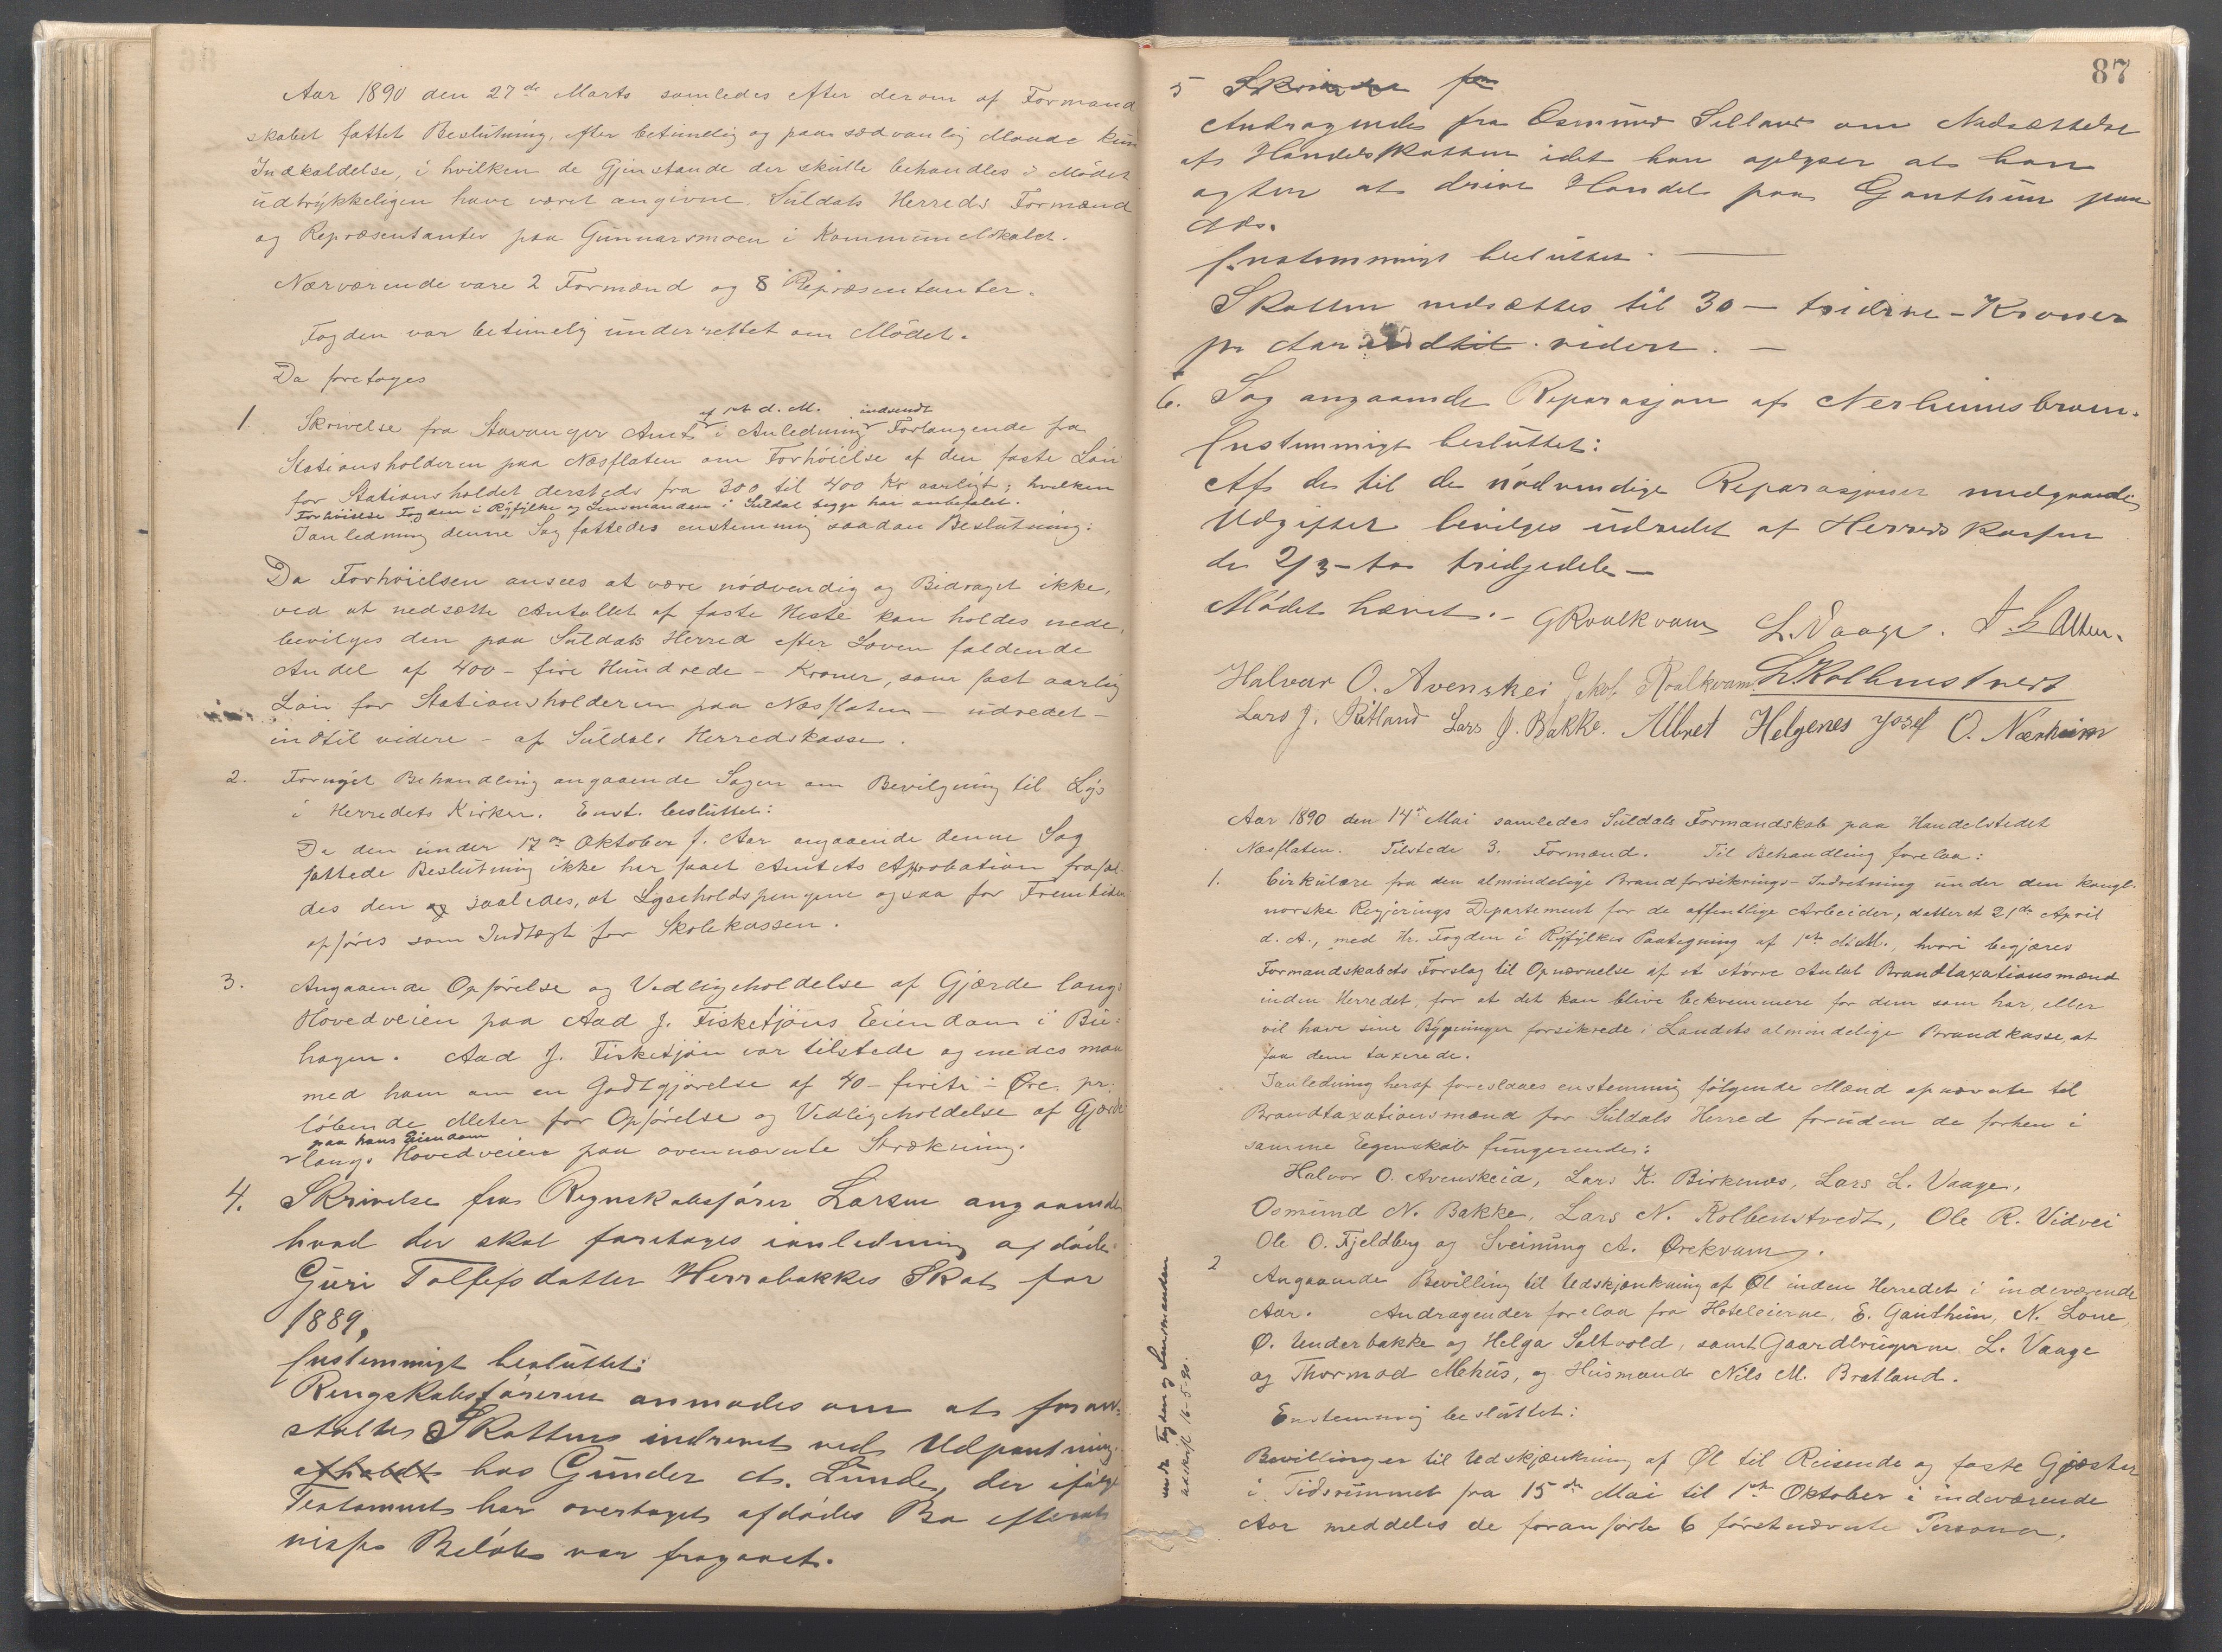 Aar 1890 den 27de Marts samledes efter derom af Formand
skabet fattet Beslutning, efter betimelig og paa sædvanlig Maade kun
Indkaldelse, i hvilken de Gjenstande der skulle behandles i Mödet
udtrykkeligen have været angivne. Suldals Herreds Formænd
og Repræsentanter paa Gunnarsmoen i Kommunelokalet.
Nærværende vare 2 Formænd og 8 Repræsentanter.
Fogden var betimelig underrettet om Mödet.
Da foretoges
1. Skrivelse fra Stavanger Amt af 1ste d. M. i Anledning indsendt Forlangende fra
Stationsholderen paa Næsflaten om Forhöielse af den faste Lön
for Stationsholdet dersteds fra 300 til 400 Kr aarligt; hvilken
Forhöielse Fogden i Ryfylke og Lensmanden i Suldal begge har anbefalet.
I anledning denne Sag fattedes enstemmig saadan Beslutning:
Da Forhöielsen ansees at være nödvendig og Bidraget ikke,
ved at nedsætte Antallet af faste Heste kan holdes nede,
bevilges den paa Suldals Herred efter Loven faldende
Andel af 400 - fire Hundrede - Kroner, som fast aarlig
Lön for Stationsholderen paa Næsflaten - udredet -
indtil videre - af Suldals Herredskasse.
2. Fornyet Behandling angaaende Sagen om Bevilgning til Lys
i Herredets Kirker. Enst. besluttet:
Da den under 17de Oktober f. Aar angaaende denne Sag
fattede Beslutning ikke har faaet Amtets Approbation frafal-
des den og saaledes, at Lyseholdspengene ogsaa for Fremtiden
opföres som Indtægt for Skolekassen.
3. Angaaende Opförelse og Vedligeholdelse af Gjærde langs
Hovedveien paa Aad J. Fisketjöns Eiendom i Bü-
hagen. Aad J. Fisketjön var tilstede og enedes man
med ham om en Godtgjörelse af 40 - firiti - Øre pr.
löbende Meter for Opförelse og Vedligeholdelse af Gjærde
paa hans Eiendom
langs Hovedveien paa ovennævnte Strækning.
4. Skrivelse fra Regnskabsförer Larsen angaaende
hvad der skal foretages ianledning afdöde
Guri Tollefsdatter Herrabakkes Skat for
1889,
Enstemmigt besluttet:
Rengskabsföreren anmodes om at foran-
staltes Skattens indrevet ved Udpantning
afholdt hos Gunder A. Lunde, der ifölge
Testament har overtaget afdödes Bo efterat
visse Belöb var fragaaet.
87
5 Skrivelse fra
Andragende fra Osmund Selland om Nedsættelse
af Handelsskatten idet han oplyser at han
agter at drive Handel paa Gauthun paa
Aas.
Enstemmigt besluttet.
Skatten nedsættes til 30 - tridive - Kroner
pr Aar indtil videre. -
6. Sag angaaende Reparasjon af Nerheimsbroen.
Enstemmigt besluttet:
Af de til de nödvendige Reparasjoner medgaaende
Udgifter bevilges udredet af Herredskassen
de 2/3 - to tridjedele -
Mödet hævet. - G Roalkvam L. Vaage.
Halvar O. Avenskei Jakob Roalkvam L. Kolbenstvedt
Lars J. Røtland Lars J. Bakke. Albret Helgenes Josef O. Nærheim
Aar 1890 den 14de Mai samledes Suldals Formandskab paa Handelstedet
Næsflaten. Tilstede 3. Formænd. Til Behandling forelaa:
1. Cirkulære fra den almindelige Brandforsikrings-Indretning under den kongl.
norske Regjerings Departement for de offentlige Arbeider, datteret 21de April
d. A., med Hr. Fogden i Ryfylkes Paategning af 1ste d. M., hvori begjæres
Formandskabets Forslag til Opnævnelse af et större Antal Brandtaxationsmænd
inden Herredet, for at det kan blive bekvemmere for dem som har, eller
vil have sine Bygninger forsikrede i Landets almindelige Brandkasse, at
faa dem taxerede.
I anledning heraf foreslaaes enstemmig fölgende Mænd opnævnte til
Brandtaxationsmænd for Suldals Herred foruden de forhen i
samme Egenskab fungerende:
Halvor O. Avenskeid, Lars K. Birkenes, Lars L. Vaage,
Osmund N. Bakke, Lars N. Kolbenstvedt, Ole R. Vidvei
Ole O. Fjeldberg og Sveinung A. Ørekvam.
2 Angaaende Bevilling til Udskjænkning af Øl inden Herredet i indeværende
Aar. Andragender forelaa fra Hoteleierne, E. Gauthun, N. Lone,
Ø. Underbakke og Helga Saltvold, samt Gaardbrugerne L. Vaage
og Thormod Mehus, og Husmand Nils M. Bratland.
Enstemmig besluttet:
Bevillinger til Udskjænkning af Øl til Reisende og faste Gjæster
i Tidsrummet fra 15de Mai til 1ste Oktober i indeværende
Aar meddeles de foranförte 6 förstnævnte Personer.
sendt Fogden og Lensmanden
udskrift 16-5-90.